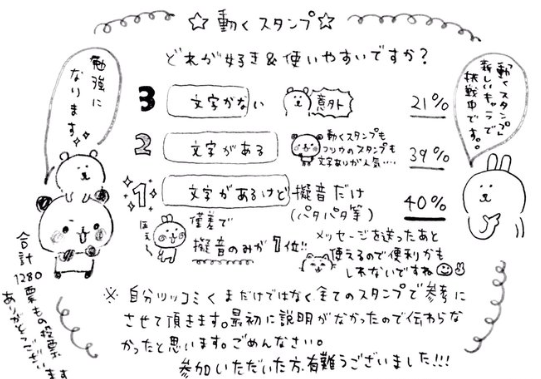 ☆動くスタンプ☆
どれが好き&使いやすいですか?
勉強に
なります。
「動くスタンプ」
新しいキャラで
挑戦中です。
3 文字がない 意外 21%
2 文字がある 39%
動くスタンプも
フツウのスタンプも
文字ありが人気‥‥
1 文字があるけど擬音だけ
(パタパタ等) 40%
ほぇ
僅差で
擬音のみが1位!!
メッセージを送ったあと
使えるので便利かも
しれないですね
合計
1280
票もの投票
ありがとうございます
※ 自分ツッコミくまだけではなく全てのスタンプで参考に
させて頂きます。最初に説明がなかったので伝わらな
かったと思います。ごめんなさい。
参加いただいた方、有難うございました!!!